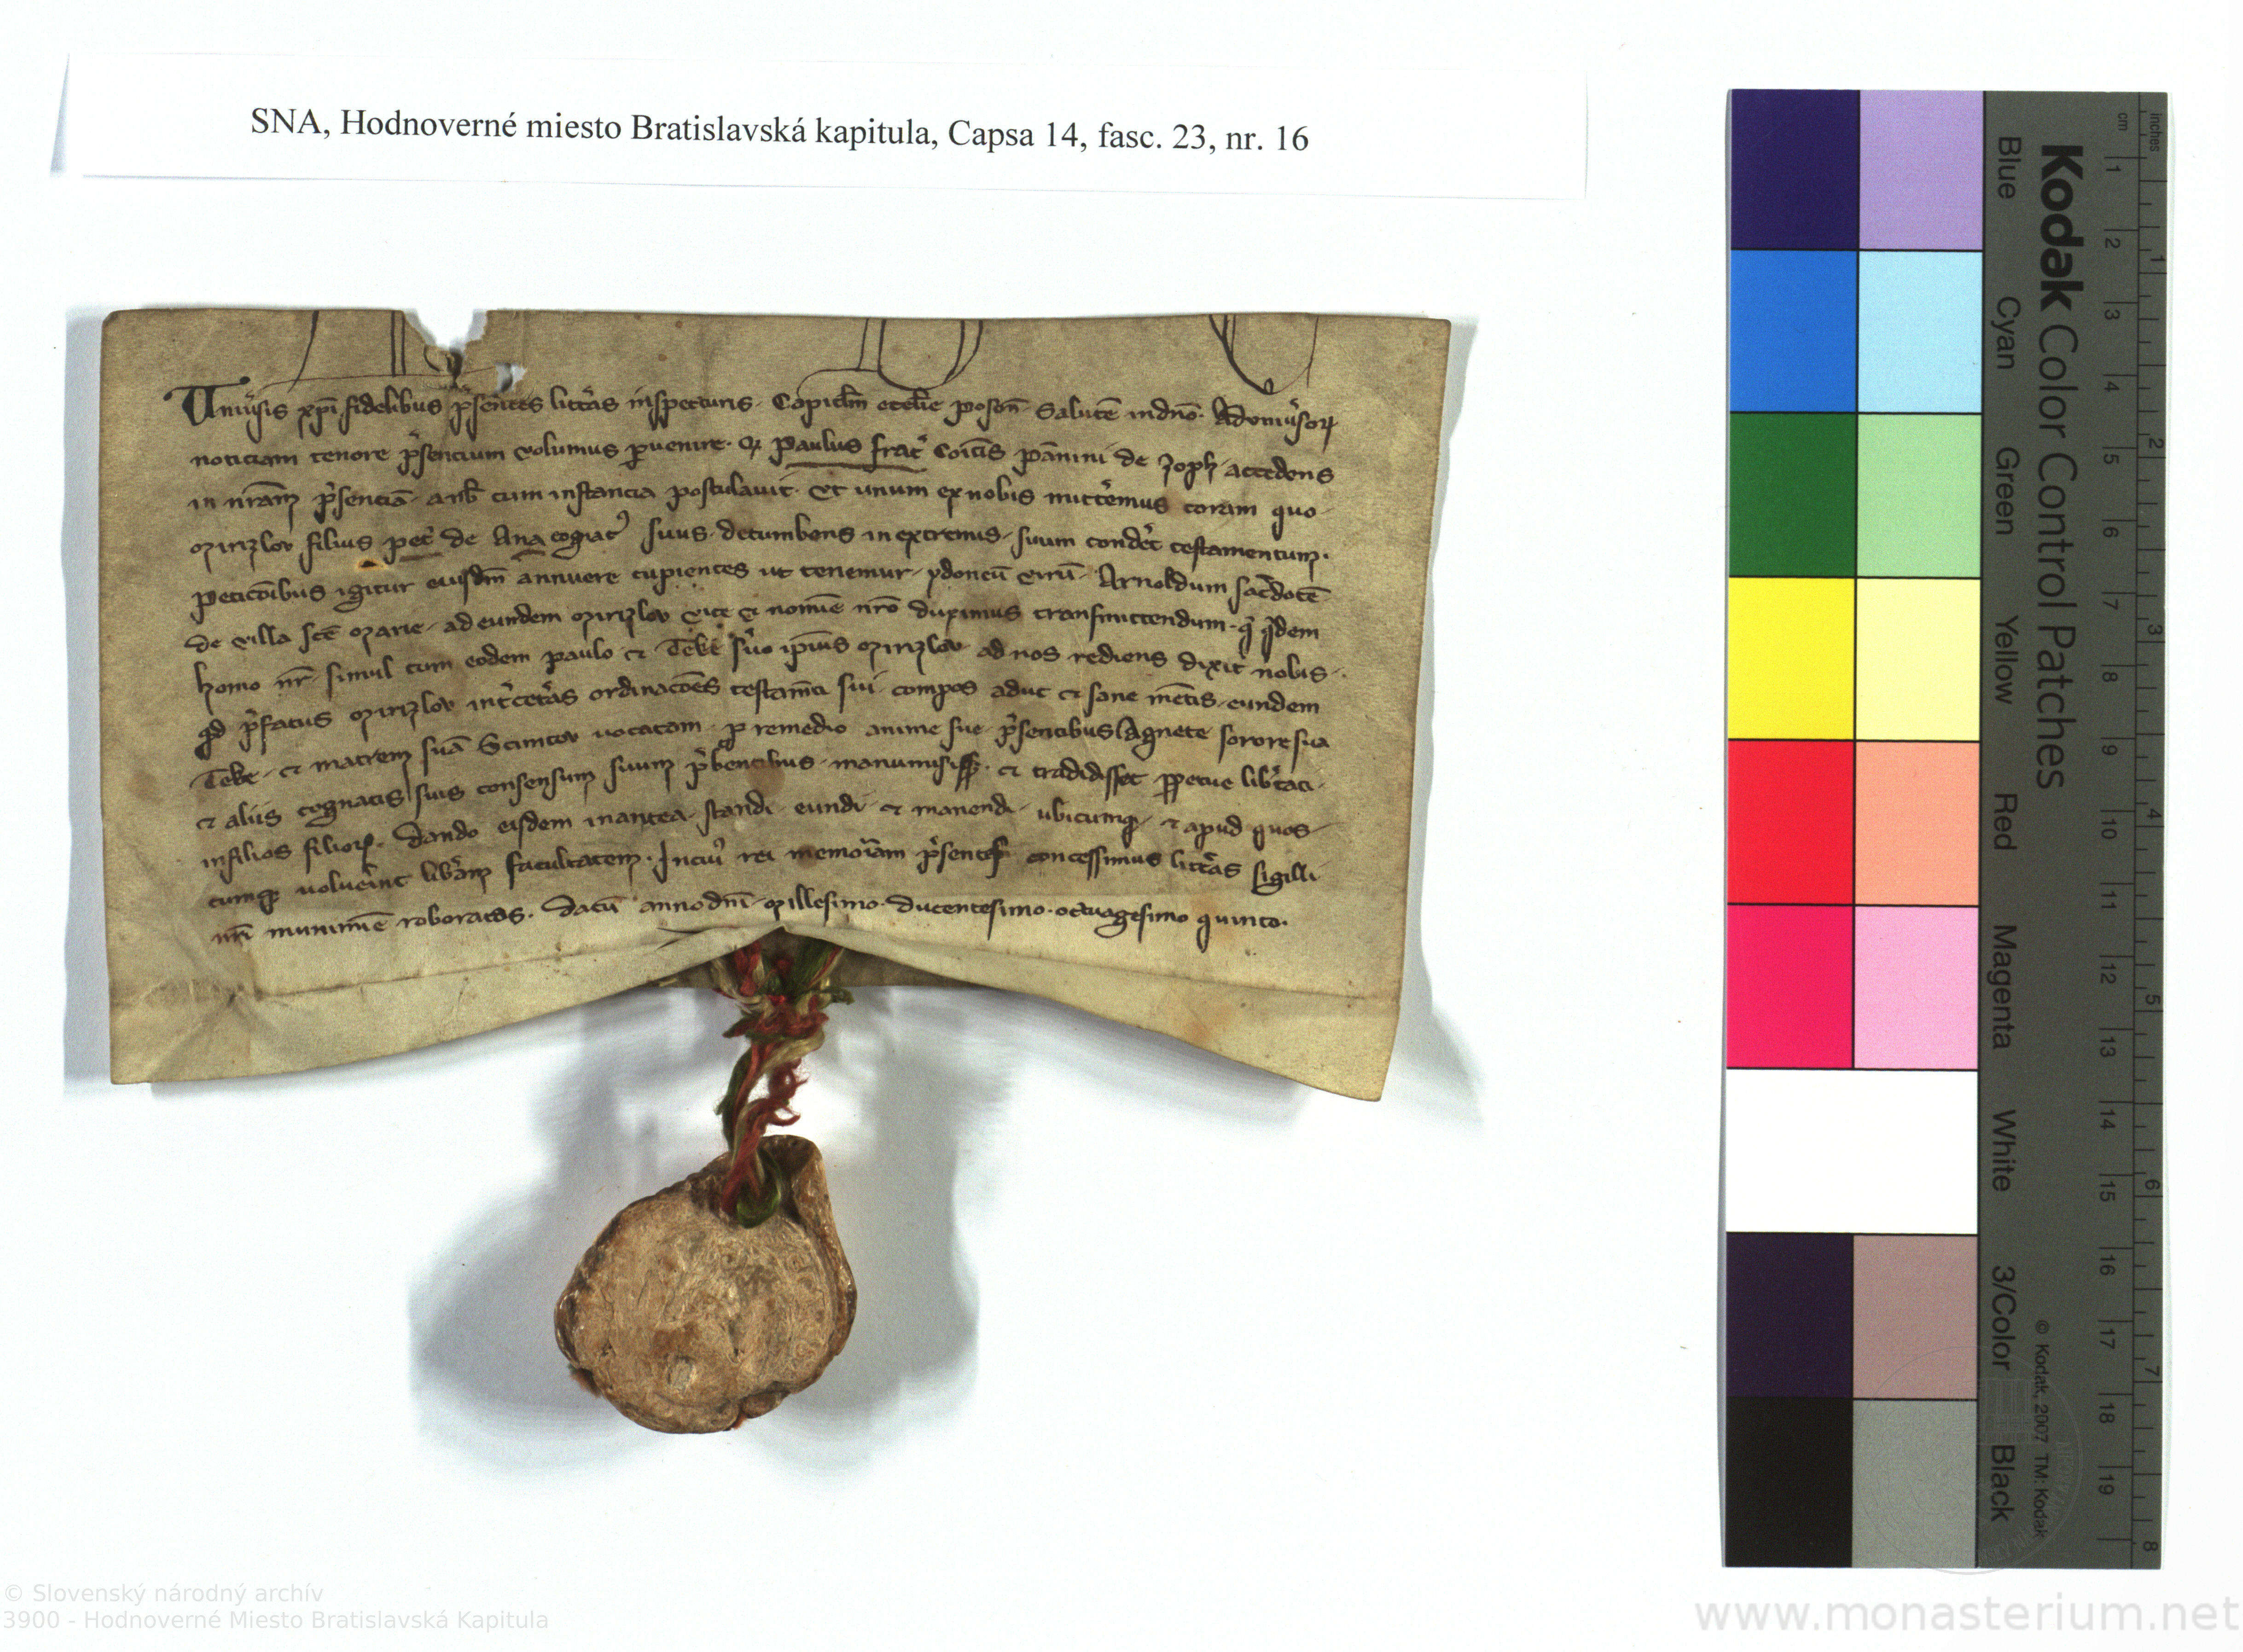 SNA, Hodnoverné miesto Bratislavská kapitula, Capsa 14, fasc. 23, nr. 16
Univ̾sis xpī fidelibus p̾sentes litt̾as inspecturis. Capitl̄m eccl̄ie poson̄ Salutē in dn̄o. Ad univ̾soꝝ
noticiam tenore p̾sencium volumus ꝑvenire. ꝙ Paulus frat̾ Comit̄s de accedens
in nr̄am p̾senciā. a nob̄ cum instancia postulavit. Et unum ex nobis mitt̾emus coram quo
filius pet̾ de Ana cogͣtꝰ suus decumbens in extremis. suum cond̾et testamentum.
Peticōibus igitur eiusdm̄ annuere cupientes ut tenemur. ydoneū virū. Arnoldum sac̾dotē
de villa sc̄e Marie. ad eundem vice et nomīe nr̄o duximus transmittendum. qͥ qͥdem
homo nr̄. simul cum eodem paulo et Teke ip̄ius ad nos rediens dixit nobis.
qd̄ p̾fatus int̾ cet̾as ordinacōes testam̄ti sui. compos aduc et sane mētis. eundem
Teke. et matrem suā vocatam. ꝓ remedio anime sue. p̾sentibus Agnete sorore sua
et aliis cognatis suis consensum suum p̾bentibus. manumisisset. et tradidisset ꝑpetue lib̾tati.
in filios filioꝝ. Dando eisdem in antea standi. eundi. et manendi. ubicumqꝫ. et apud quos
cumqꝫ volu̾int lib̾am facultatem. In cuiꝰ rei memoriam p̾sentes concessimus litt̾as sigilli
nr̄i munimīe roboratas. Datū anno dn̄i. Millesimo. Ducentesimo. octuagesimo quinto.
Kodak Color Control Patches
Blue Cyan Green Yellow Red Magenta White 3/Color Black
© Kodak, 2007 TM: Kodak
cm 1 2 3 4 5 6 7 8 9 10 11 12 13 14 15 16 17 18 19
inches 1 2 3 4 5 6 7 8
© Slovenský národný archív
3900 - Hodnoverné Miesto Bratislavská Kapitula
www.monasterium.net